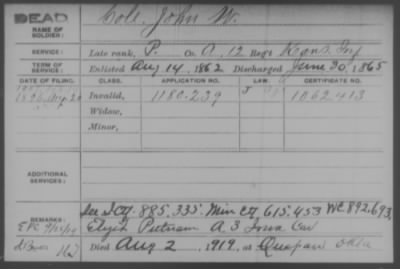 DEAD
NAME OF SOLDIER: Cole, John W.
SERVICE: Late rank, P. Co. A, 12 Reg't Kans. Inf
TERM OF SERVICE: Enlisted Aug 14, 1862 Discharged June 30, 1865
DATE OF FILING. CLASS. APPLICATION NO. LAW. CERTIFICATE NO.
1896, Aug 20 Invalid, 1180.239 1062.413
Widow,
Minor,
ADDITIONAL SERVICES:
See Cf. 885.335. Min Cf. 615.453 WC 892.693
REMARKS: Elijah Putnam A 3 Iowa Cav
Died Aug 2, 1919, at Quapaw Okla